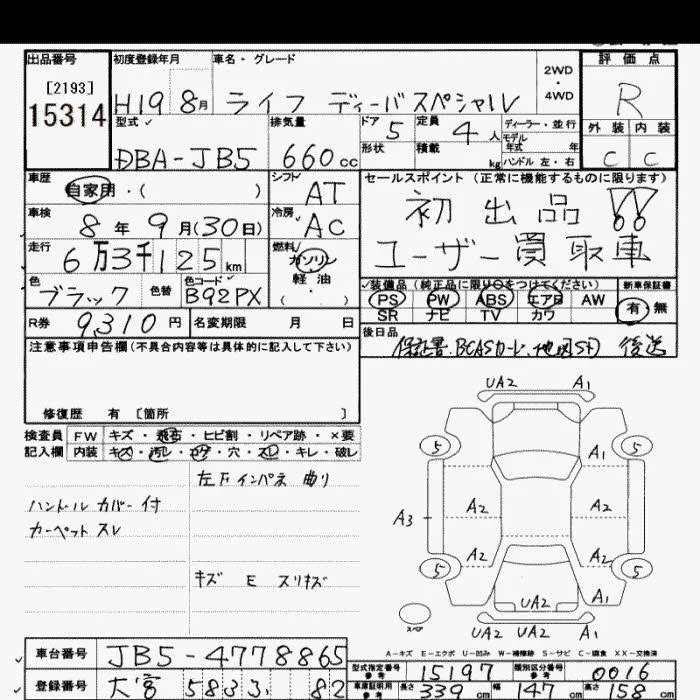 出品番号 初度登録年月 車名・グレード 2WD・4WD 評価点
[2193]
15314 H19 8月 ライフ ディーバスペシャル R
型式 排気量 ドア 5 定員 4人 ディーラー・並行 外装 内装
DBA-JB5 660cc 形状 積載 kg モデル年式 年 ハンドル 左・右 C C
車歴 自家用・( ) シフト AT セールスポイント (正常に機能するものに限ります)
車検 8年 9月(30日) 冷房 AC 初出品!!
走行 6万3千125km 燃料 ガソリン 軽油 ( ・ ) ユーザー買取車
色 ブラック 色替 色コード B92PX 装備品 (純正品に限り○をつけてください) 新車保証書
PS PW ABS エアB AW 有・無
SR ナビ TV カワ
R券 9310円 名変期限 月 日 後日品
保証書.BCASカード.地図SD 後送
注意事項申告欄 (不具合内容等は具体的に記入して下さい)
修復歴 有 [箇所 ]
検査員 FW キズ・飛石・ヒビ割・リペア跡・×要
記入欄 内装 キズ・汚レ・コゲ・穴・スレ・キレ・破レ
左下インパネ曲り
ハンドルカバー付
カーペットスレ
キズ E スリキズ
UA2 A1
5 5
A1
A2 A2
A3
A2 A2
5 5
UA2 A1
スペア
UA2 UA2 UA2
A-キズ E-エクボ U-凹み W-補修跡 S-サビ C-腐食 XX-交換済
車台番号 JB5-4778865
型式指定番号 参考 15197 類別区分番号 参考 0016
登録番号 大宮 583 82
車庫証明用 参考 長さ 339cm 幅 147cm 高さ 158cm